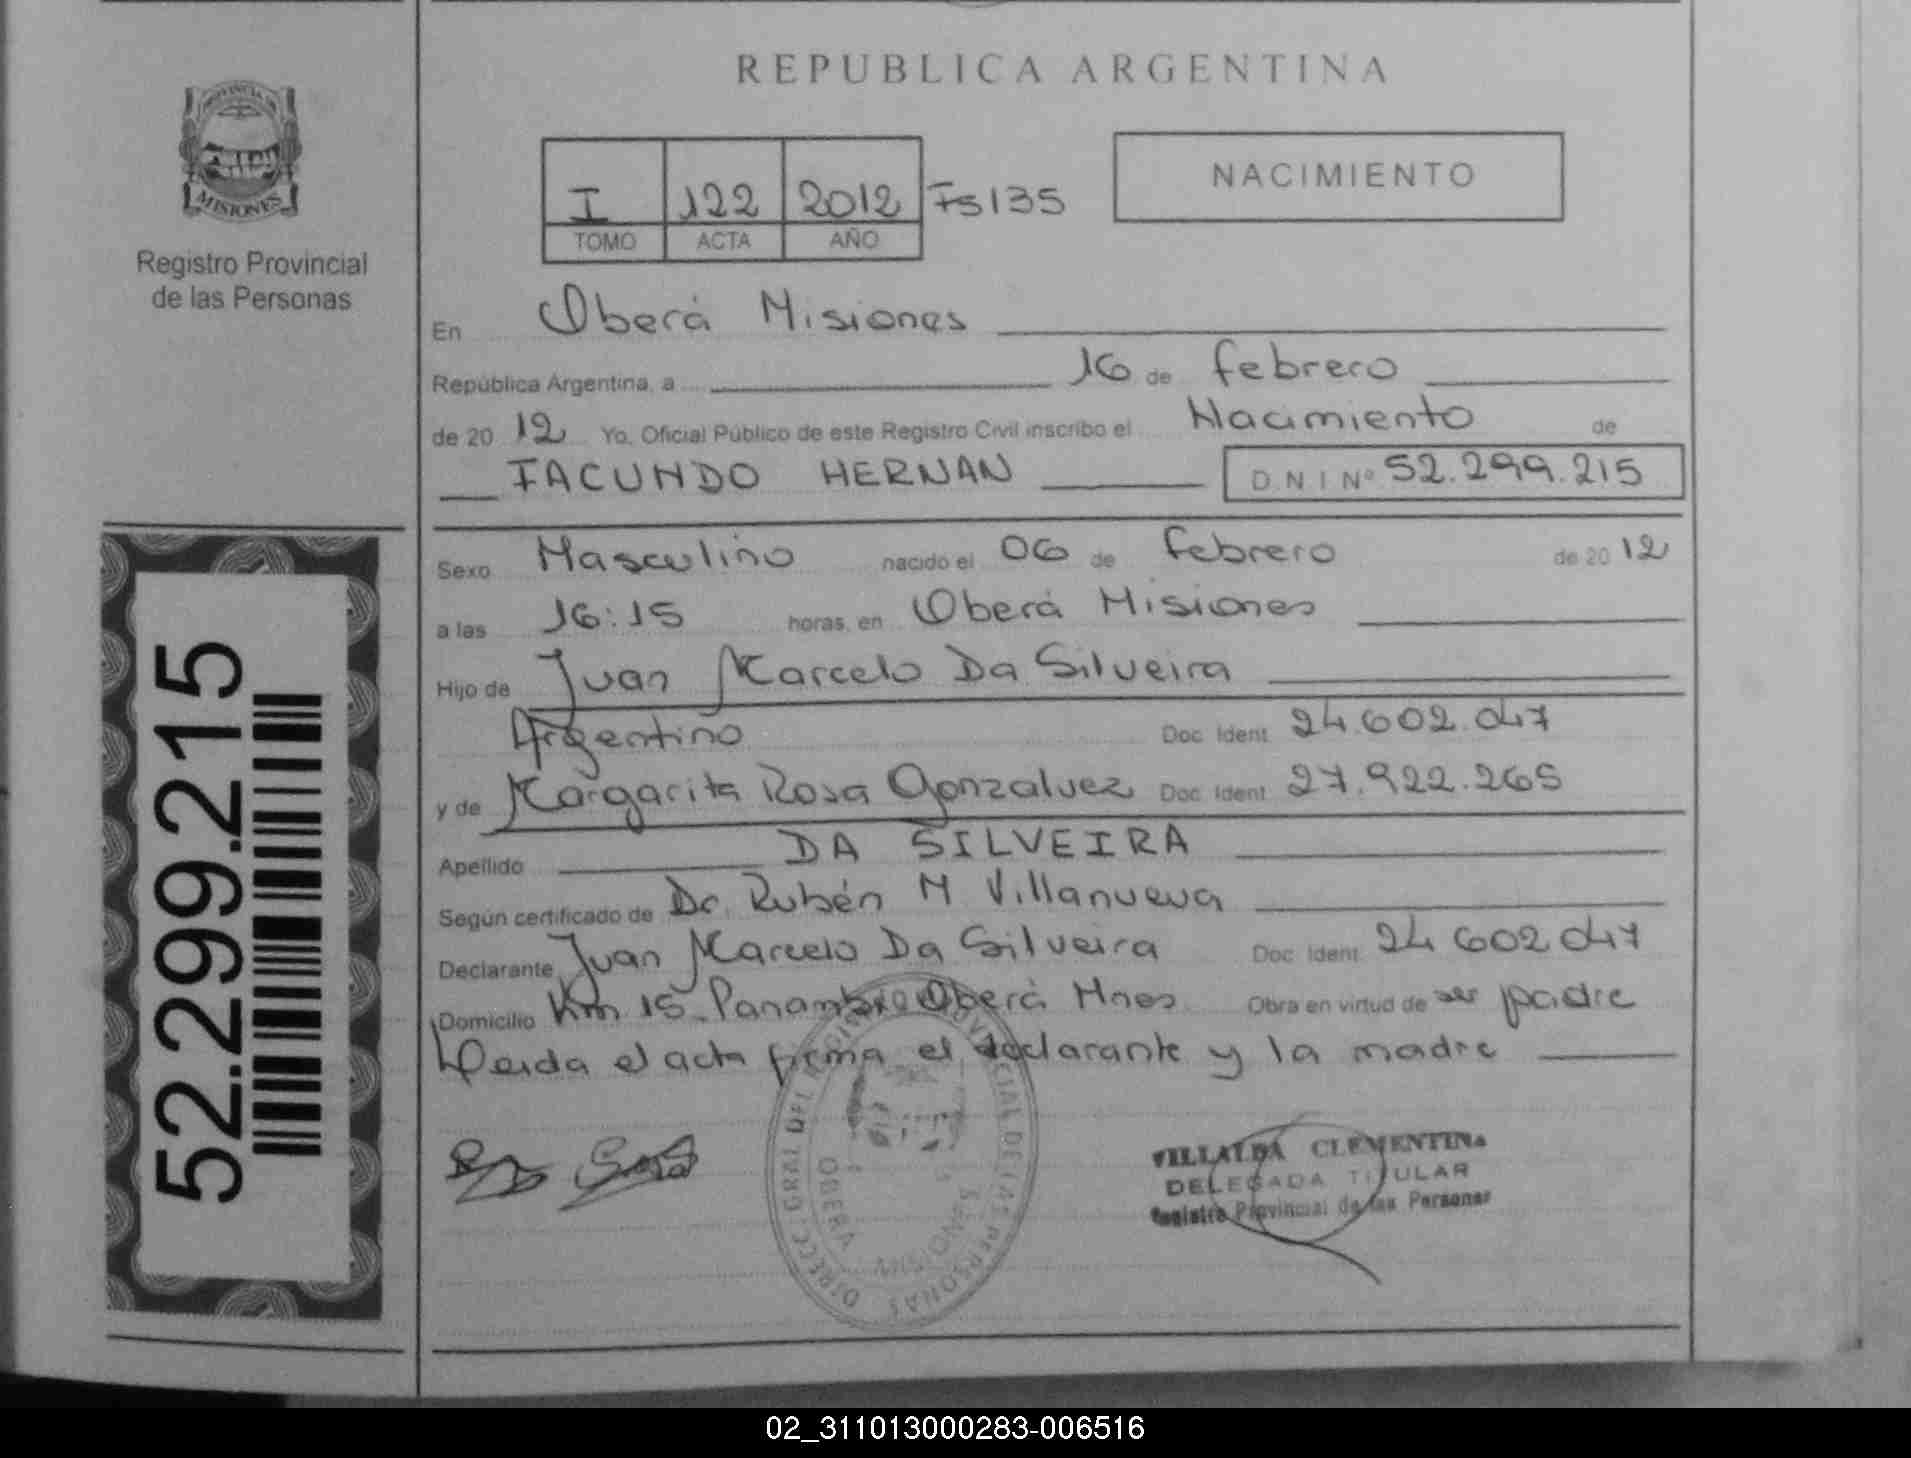 REPUBLICA ARGENTINA
PROVINCIA DE
MISIONES
Registro Provincial
de las Personas
I 122 2012 Fs 135
TOMO ACTA AÑO
NACIMIENTO
En Oberá Misiones
República Argentina, a 16 de febrero
de 20 12 Yo, Oficial Público de este Registro Civil inscribo el Nacimiento de
FACUNDO HERNAN D N I Nº 52.299.215
Sexo Masculino nacido el 06 de febrero de 20 12
a las 16:15 horas, en Oberá Misiones
Hijo de Juan Marcelo Da Silveira
Argentino Doc. Ident. 24.602.047
y de Margarita Rosa Gonzalvez Doc. Ident. 27.922.265
Apellido DA SILVEIRA
Según certificado de Dr. Rubén M Villanueva
Declarante Juan Marcelo Da Silveira Doc. Ident. 24 602 047
Domicilio Km 15 Panambí Oberá Mnes Obra en virtud de ser padre
Leida el acta firma el declarante y la madre
52.299.215
DIRECC. GRAL DEL REGISTRO PROVINCIAL DE LAS PERSONAS
OBERA
MISIONES
VILLALBA CLEMENTINA
DELEGADA TITULAR
Registro Provincial de las Personas
02_311013000283-006516